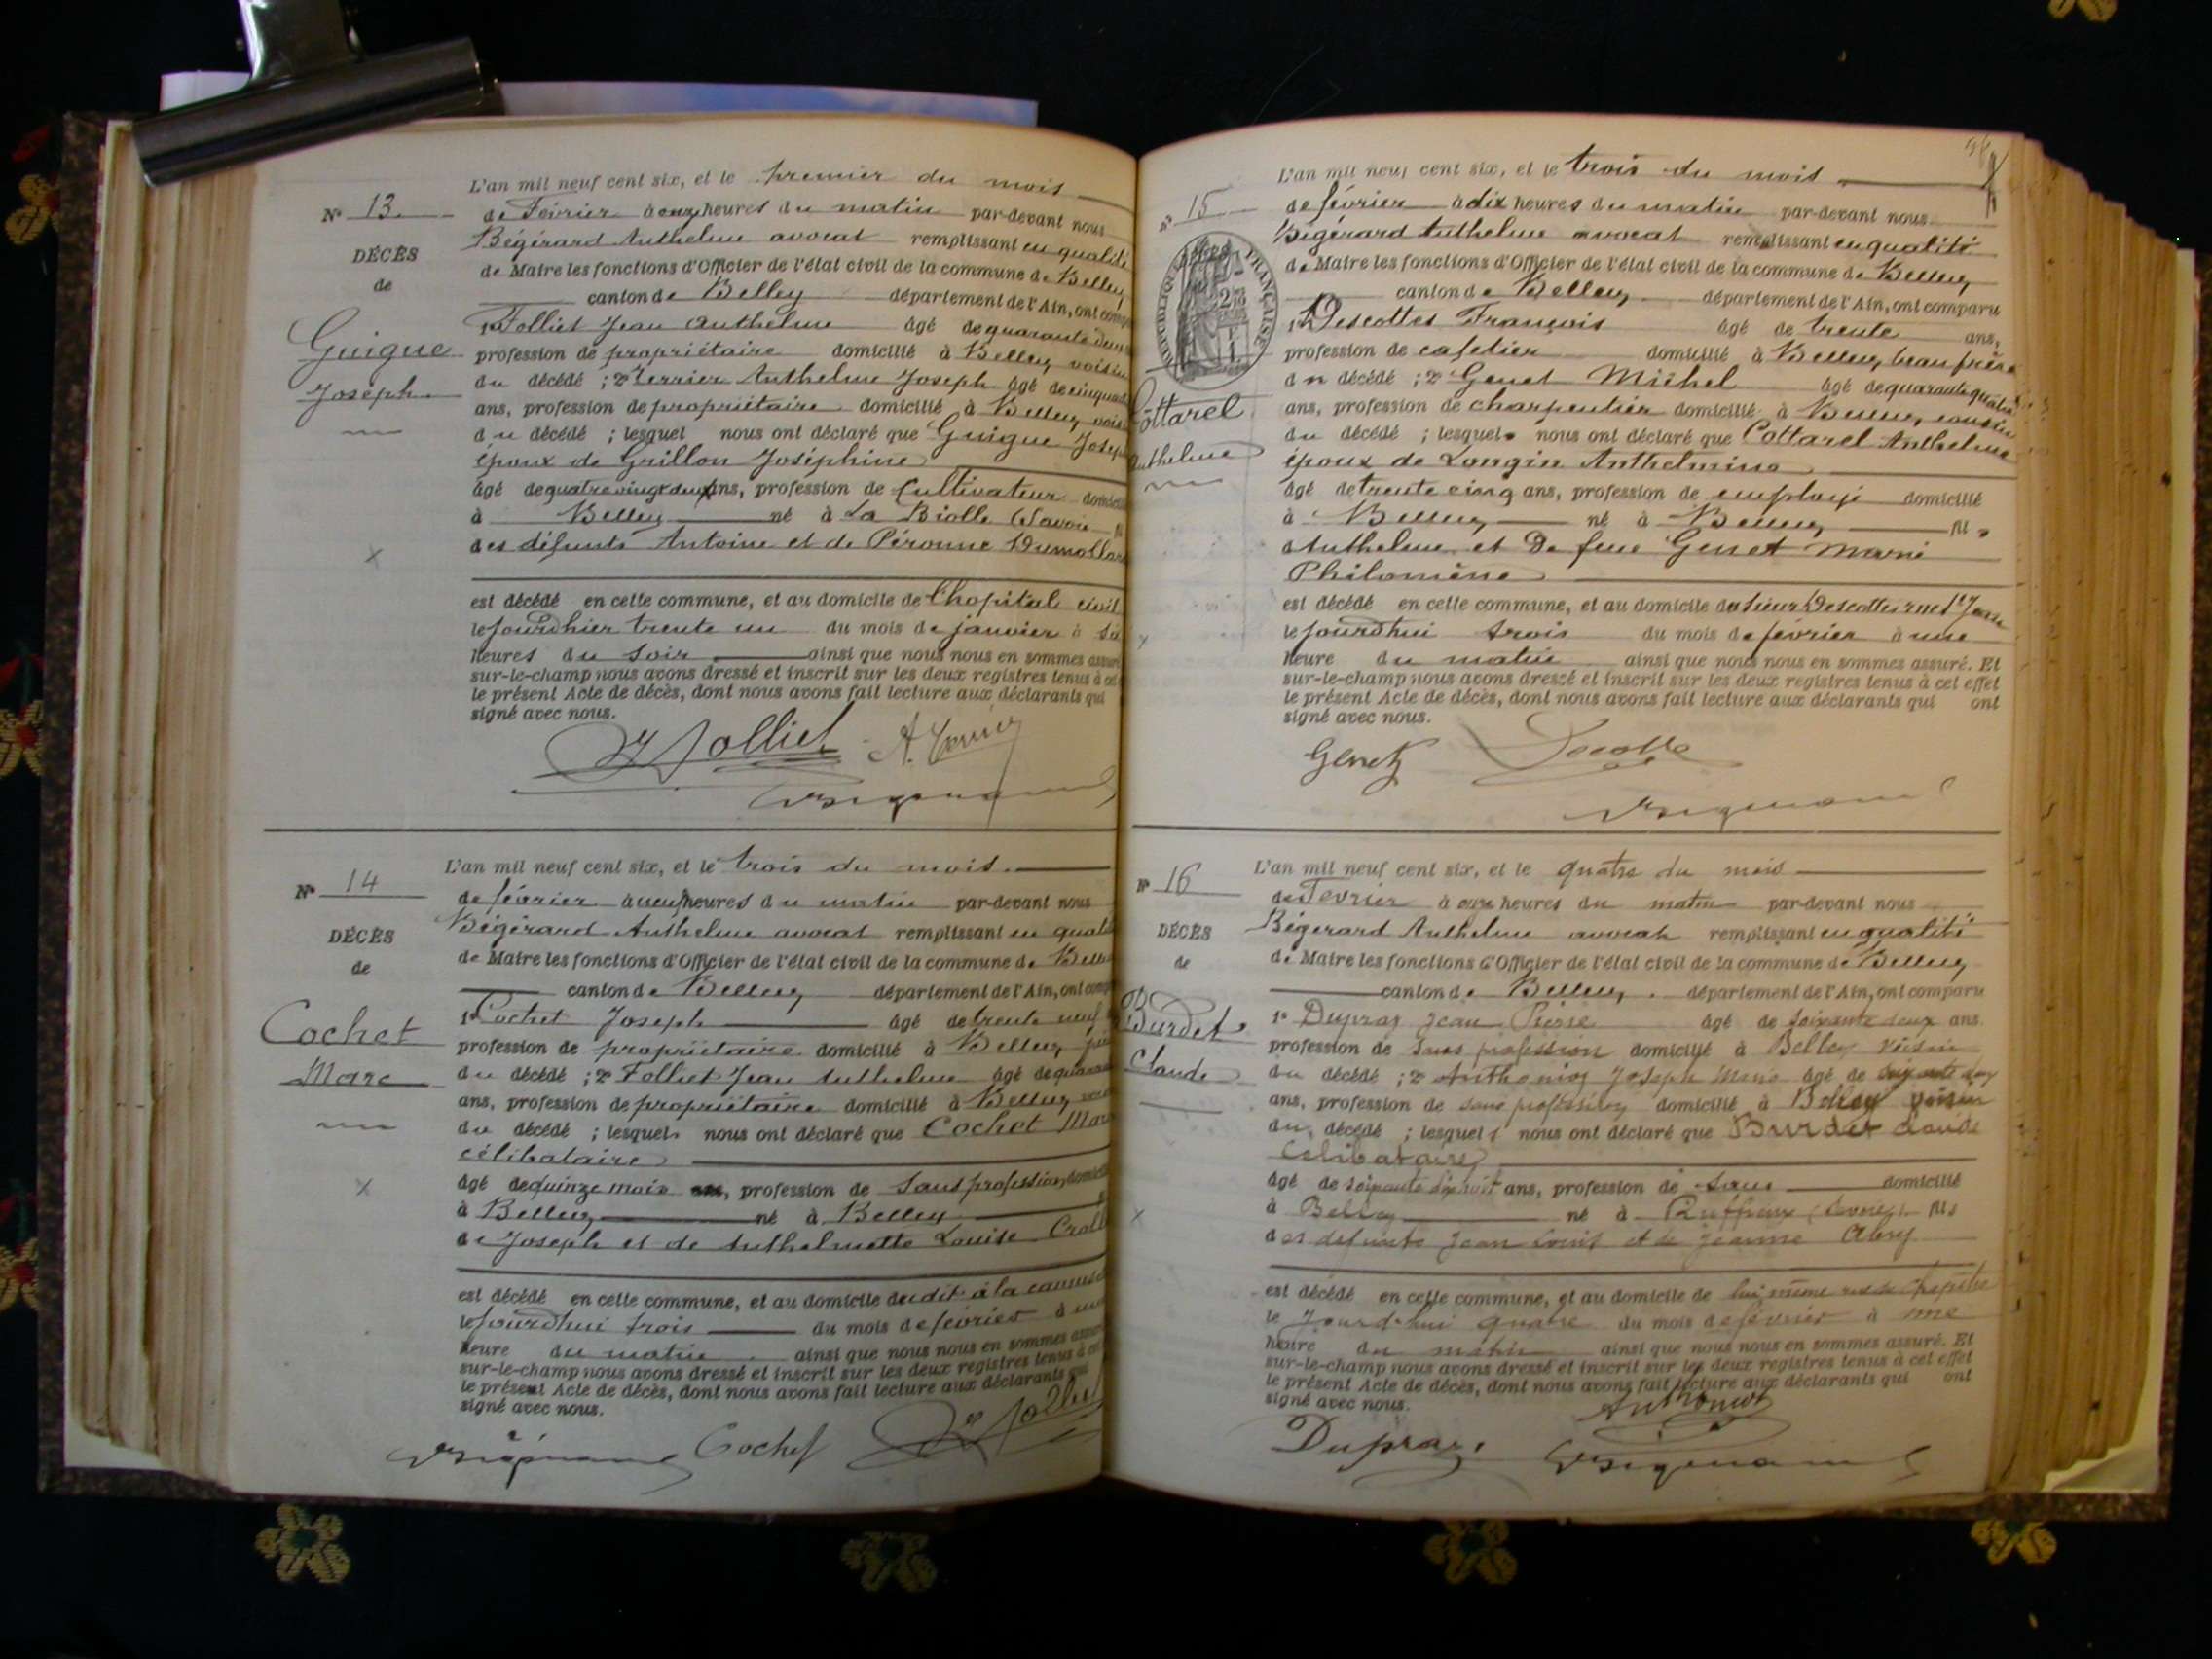 L'an mil neuf cent six, et le premier du mois
N° 13
de Février à onze heures du matin par-devant nous
Bégérard Anthelme avocat remplissant en qualité
DÉCÈS
de Maire les fonctions d'Officier de l'état civil de la commune de Belley
de
canton de Belley département de l'Ain, ont comp
1° Folliet Jean Anthelme âgé de quarante deux
Guigue
profession de propriétaire domicilié à Belley voisin
Joseph
du décédé ; 2° Terrier Anthelme Joseph âgé de cinquante
ans, profession de propriétaire domicilié à Belley voisin
du décédé ; lesquel nous ont déclaré que Guigue Joseph
époux de Grillon Joséphine
âgé de quatre vingt deux ans, profession de Cultivateur domicilié
à Belley né à La Biolle (Savoie fi
des défunts Antoine et de Péronne Dumollard
est décédé en cette commune, et au domicile de l'hopital civil
le jourd'hier trente un du mois de janvier à
heures du soir ainsi que nous nous en sommes assuré
sur-le-champ nous avons dressé et inscrit sur les deux registres tenus à cet
le présent Acte de décès, dont nous avons fait lecture aux déclarants qui
signé avec nous.
Folliet A. Terrier
L'an mil neuf cent six, et le trois du mois
N° 14
de février à neuf heures du matin par-devant nous
Bégérard Anthelme avocat remplissant en quali
DÉCÈS
de Maire les fonctions d'Officier de l'état civil de la commune de Belley
de
canton de Belley département de l'Ain, ont comp
1° Cochet Joseph âgé de trente neuf
Cochet
profession de propriétaire domicilié à Belley père
Marc
du décédé ; 2° Folliet Jean Anthelme âgé de quarante
ans, profession de propriétaire domicilié à Belley
du décédé ; lesquels nous ont déclaré que Cochet Marc
célibataire
âgé de quinze mois ans, profession de sans profession, domicilié
à Belley né à Belley
de Joseph et de Anthelmette Louise
est décédé en cette commune, et au domicile dudit à la
le jourd'hui trois du mois de février à une
heure du matin ainsi que nous nous en sommes assuré
sur-le-champ nous avons dressé et inscrit sur les deux registres tenus à cet
le présent Acte de décès, dont nous avons fait lecture aux déclarants qui
signé avec nous.
Cochet Folliet
L'an mil neuf cent six, et le trois du mois
N° 15
de février à dix heures du matin par-devant nous
Bégérard Anthelme avocat remplissant en qualité
de Maire les fonctions d'Officier de l'état civil de la commune de Belley
RÉPUBLIQUE FRANÇAISE
canton de Belley département de l'Ain, ont comparu
1° Descottes François âgé de trente ans,
profession de cafetier domicilié à Belley, beau frère
du décédé ; 2° Genet Michel âgé de quarante quatre
Cottarel
ans, profession de charpentier domicilié à Belley, cousin
du décédé ; lesquels nous ont déclaré que Cottarel Anthelme
Anthelme
époux de Longin Anthelmine
âgé de trente cinq ans, profession de employé domicilié
à Belley né à Belley fils
Anthelme et De feue Genet Marie
Philomène
est décédé en cette commune, et au domicile du sieur Descottes rue St Jean
le jourd'hui trois du mois de février à une
heure du matin ainsi que nous nous en sommes assuré. Et
sur-le-champ nous avons dressé et inscrit sur les deux registres tenus à cet effet
le présent Acte de décès, dont nous avons fait lecture aux déclarants qui ont
signé avec nous.
Genet Descotte
L'an mil neuf cent six, et le quatre du mois
N° 16
de Février à onze heures du matin par-devant nous
Bégérard Anthelme avocat remplissant en qualité
DÉCÈS
de Maire les fonctions d'Officier de l'état civil de la commune de Belley
de
canton de Belley département de l'Ain, ont comparu
Burdet
1° Dupraz Jean Pierre âgé de soixante deux ans
profession de sans profession domicilié à Belley voisin
Claude
du décédé ; 2° Anthonioz Joseph Marie âgé de
ans, profession de sans profession domicilié à Belley voisin
du décédé ; lesquels nous ont déclaré que Burdet Claude
célibataire
âgé de soixante dix huit ans, profession de sans domicilié
à Belley né à Ruffieux (Savoie) fils
des défunts Jean Louis et de Jeanne Abry
est décédé en cette commune, et au domicile de lui même rue
le jourd'hui quatre du mois de février à une
heure du matin ainsi que nous nous en sommes assuré. Et
sur-le-champ nous avons dressé et inscrit sur les deux registres tenus à cet effet
le présent Acte de décès, dont nous avons fait lecture aux déclarants qui ont
signé avec nous.
Anthonioz
Dupraz